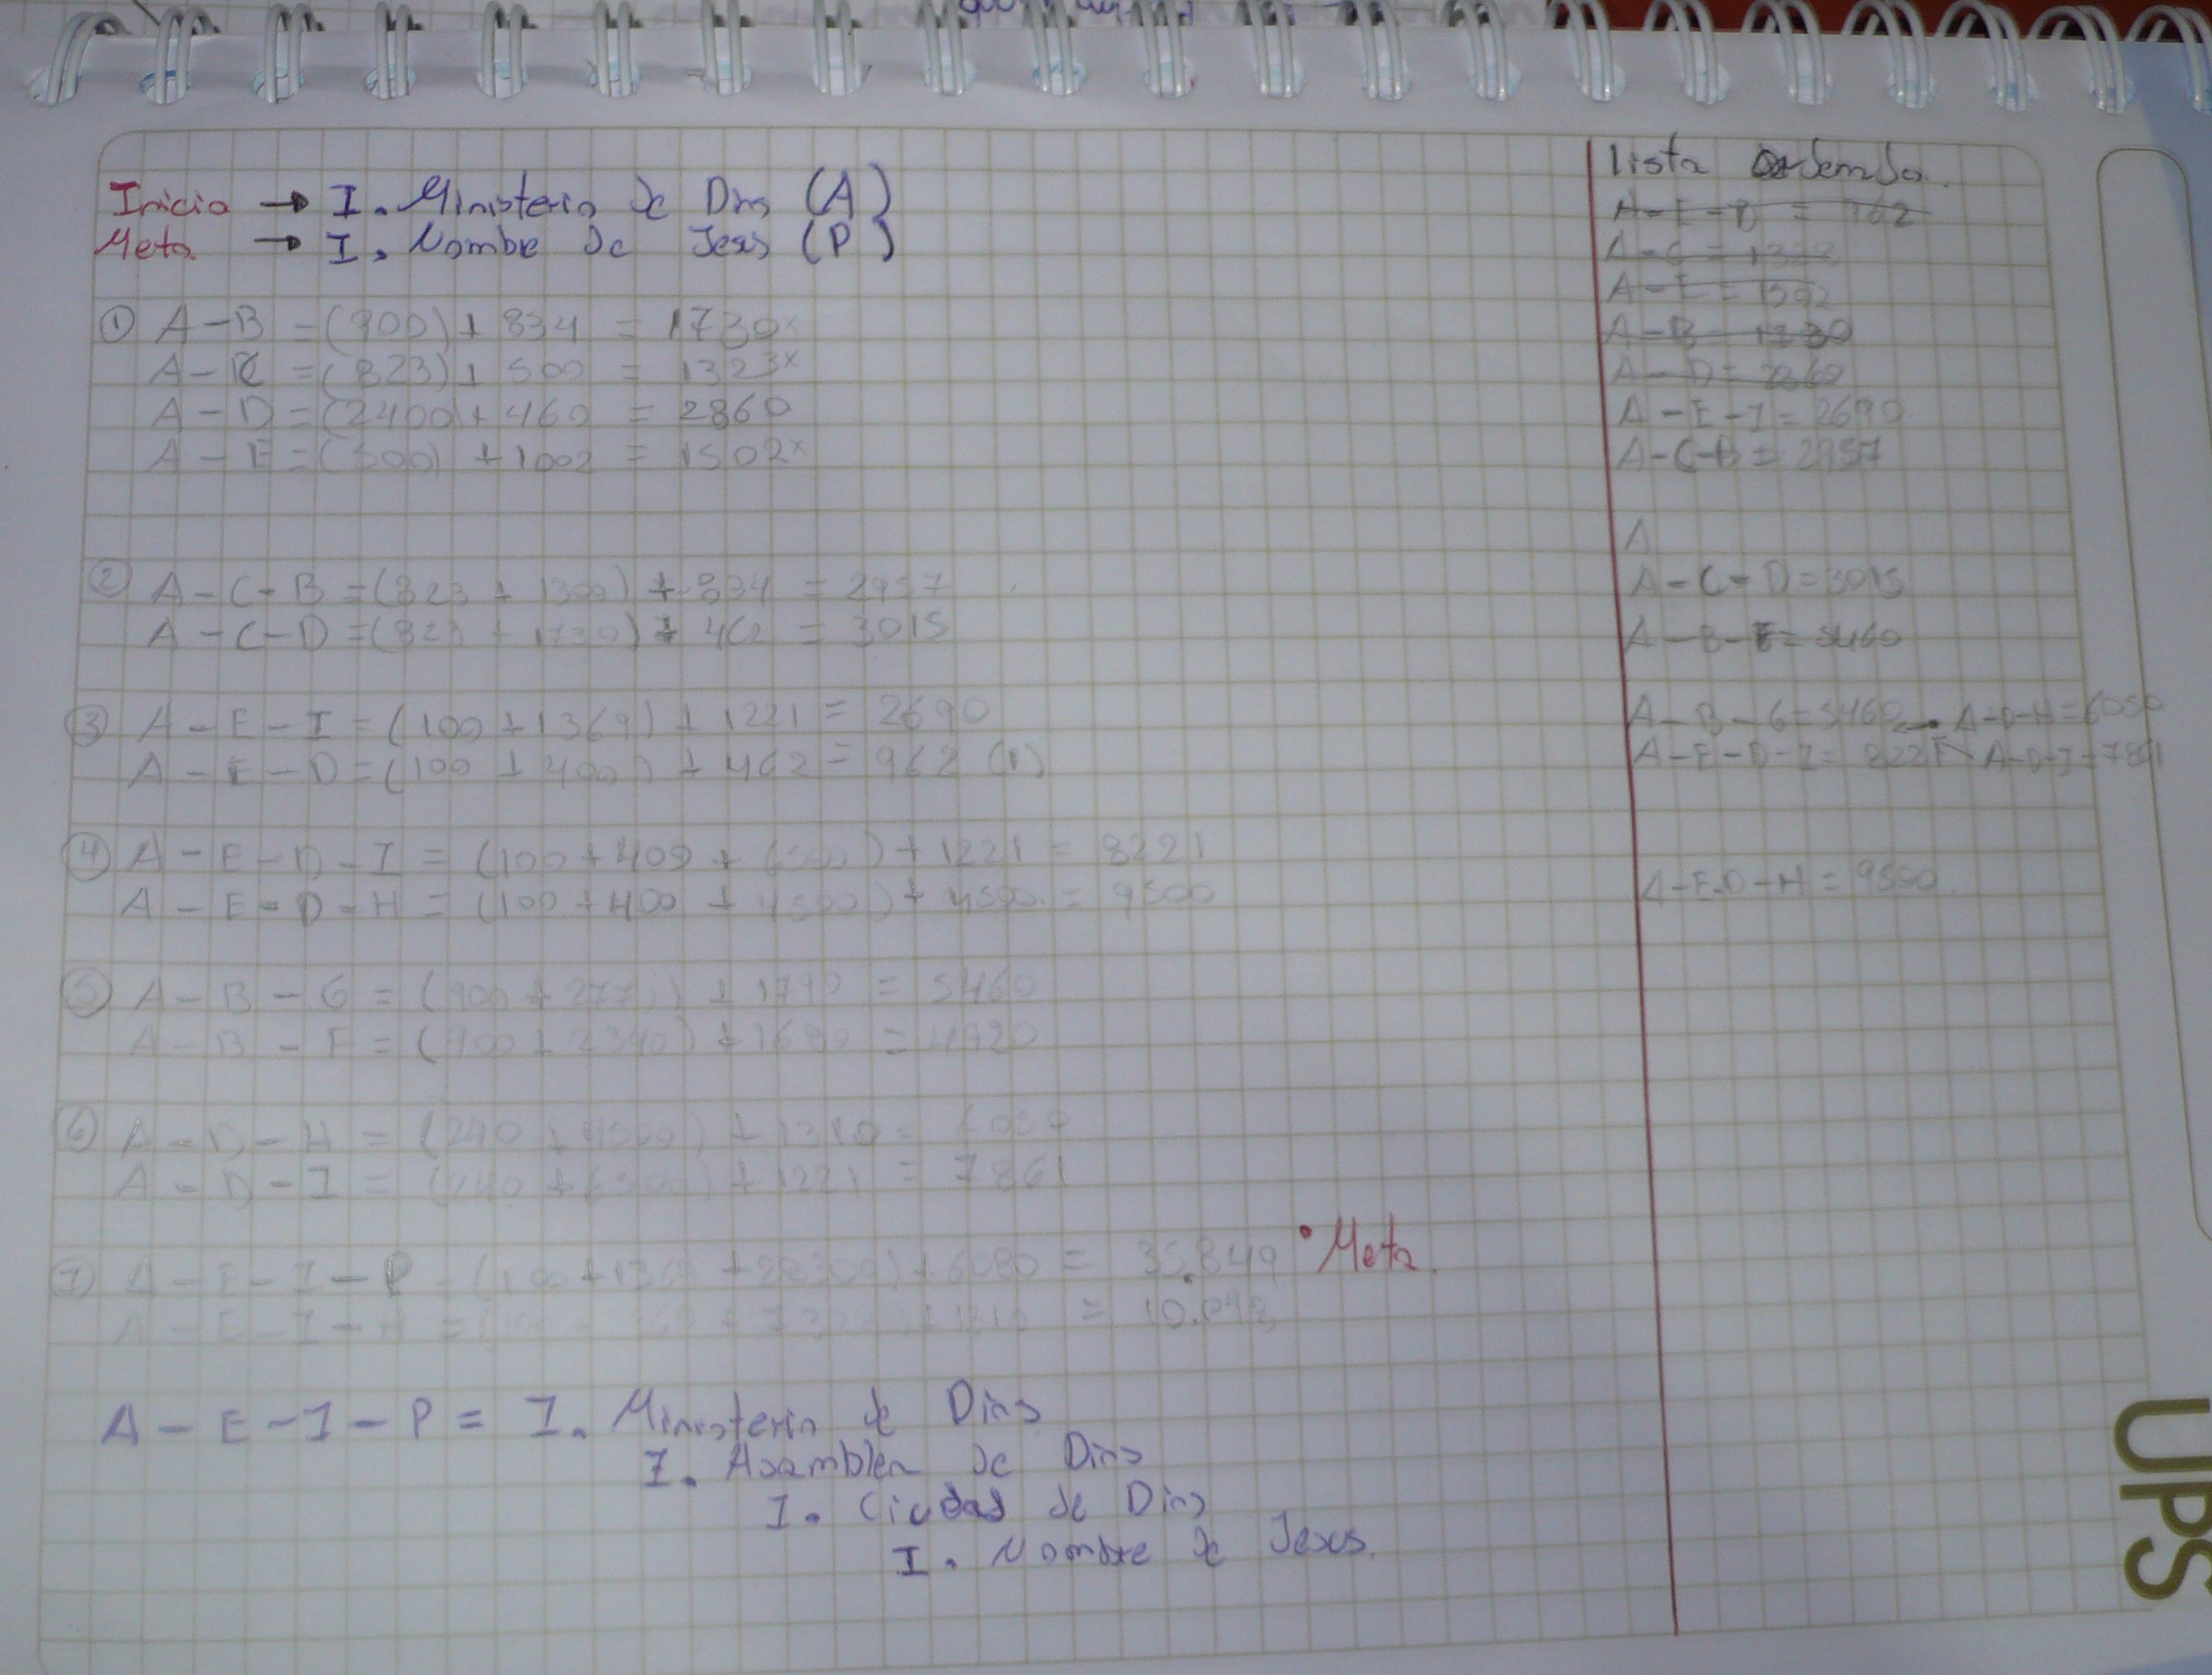 Inicio → I. Ministerio de Dios (A)
Meta → I. Nombre de Jesus (P)
① A-B = (900) + 834 = 1730x
A-C = (823) + 500 = 1323x
A-D = (2400 + 460 = 2860
A-E = (500) + 1002 = 1502x
② A-C-B = (823 + 1300) + 834 = 2957
A-C-D = (823 + 1730) + 462 = 3015
③ A-E-I = (100 + 1369) + 1221 = 2690
A-E-D = (100 + 400) + 462 = 962 (1)
④ A-E-D-I = (100 + 400 + 6500) + 1221 = 8221
A-E-D-H = (100 + 400 + 4500) + 4500 = 9500
⑤ A-B-G = (900 + 277 ) + 1790 = 5460
A-B-F = (900 + 2340) + 1680 = 4920
⑥ A-D-H = (240 + 4500) + 1310 = 6050
A-D-I = (240 + 6300) + 1221 = 7861
⑦ A-E-I-P = (100 + 1369 + 28300) + 6080 = 35.849 • Meta.
A-E-I-H = + 1310 = 10.098
A-E-I-P = I. Ministerio de Dios
I. Asamblea de Dios
I. Ciudad de Dios
I. Nombre de Jesus.
Lista Ordenada.
A-E-D = 962
A-C = 1323
A-E = 1502
A-B = 1730
A-D = 2860
A-E-I = 2690
A-C-B = 2957
A
A-C-D = 3015
A-B-F = 5460
A-B-G = 5460 A-D-H = 6050
A-E-D-I = 8221 A-D-I = 7861
A-E-D-H = 9500
UPS